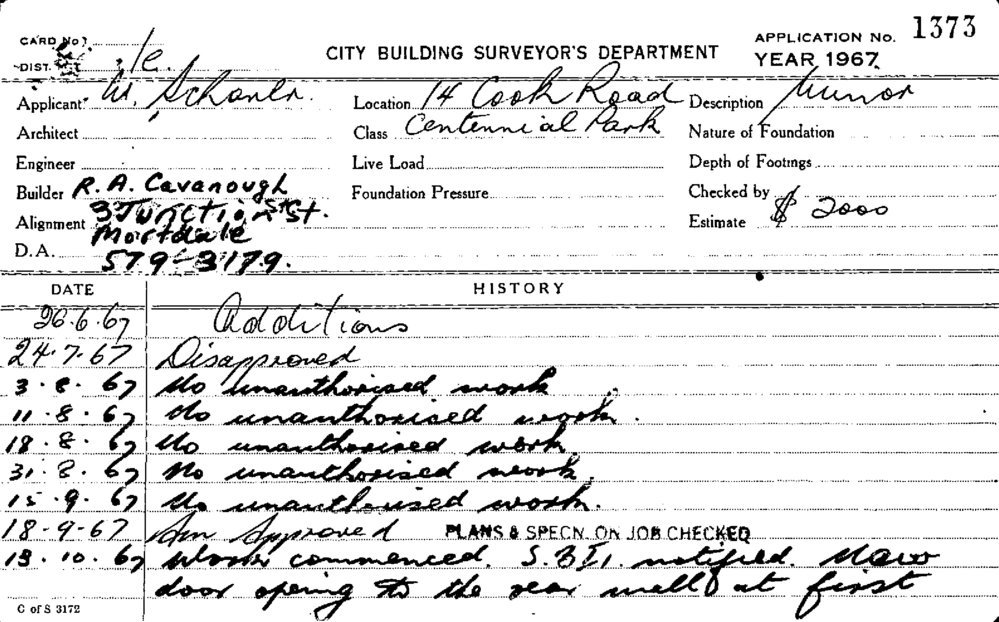 CARD No. 1/c.
DIST.
CITY BUILDING SURVEYOR'S DEPARTMENT
APPLICATION No. 1373
YEAR 1967
Applicant W.
Location 14 Cook Road
Description Minor
Architect
Class Centennial Park
Nature of Foundation
Engineer
Live Load
Depth of Footings
Builder R. A. Cavanough
Foundation Pressure
Checked by
Alignment 3 Junction St.
Mortdale
Estimate $ 2000
D.A. 579-3179.
DATE HISTORY
26.6.67 Additions
24.7.67 Disapproved
3.8.67 No unauthorised work
11.8.67 No unauthorised work.
18.8.67 No unauthorised work
31.8.67 No unauthorised work.
15.9.67 No unauthorised work.
18-9-67 Am Approved PLANS & SPECN. ON JOB CHECKED
13.10.67 Work commenced. S.B.I. notified. New
door opening to the rear wall at first
C of S 3172